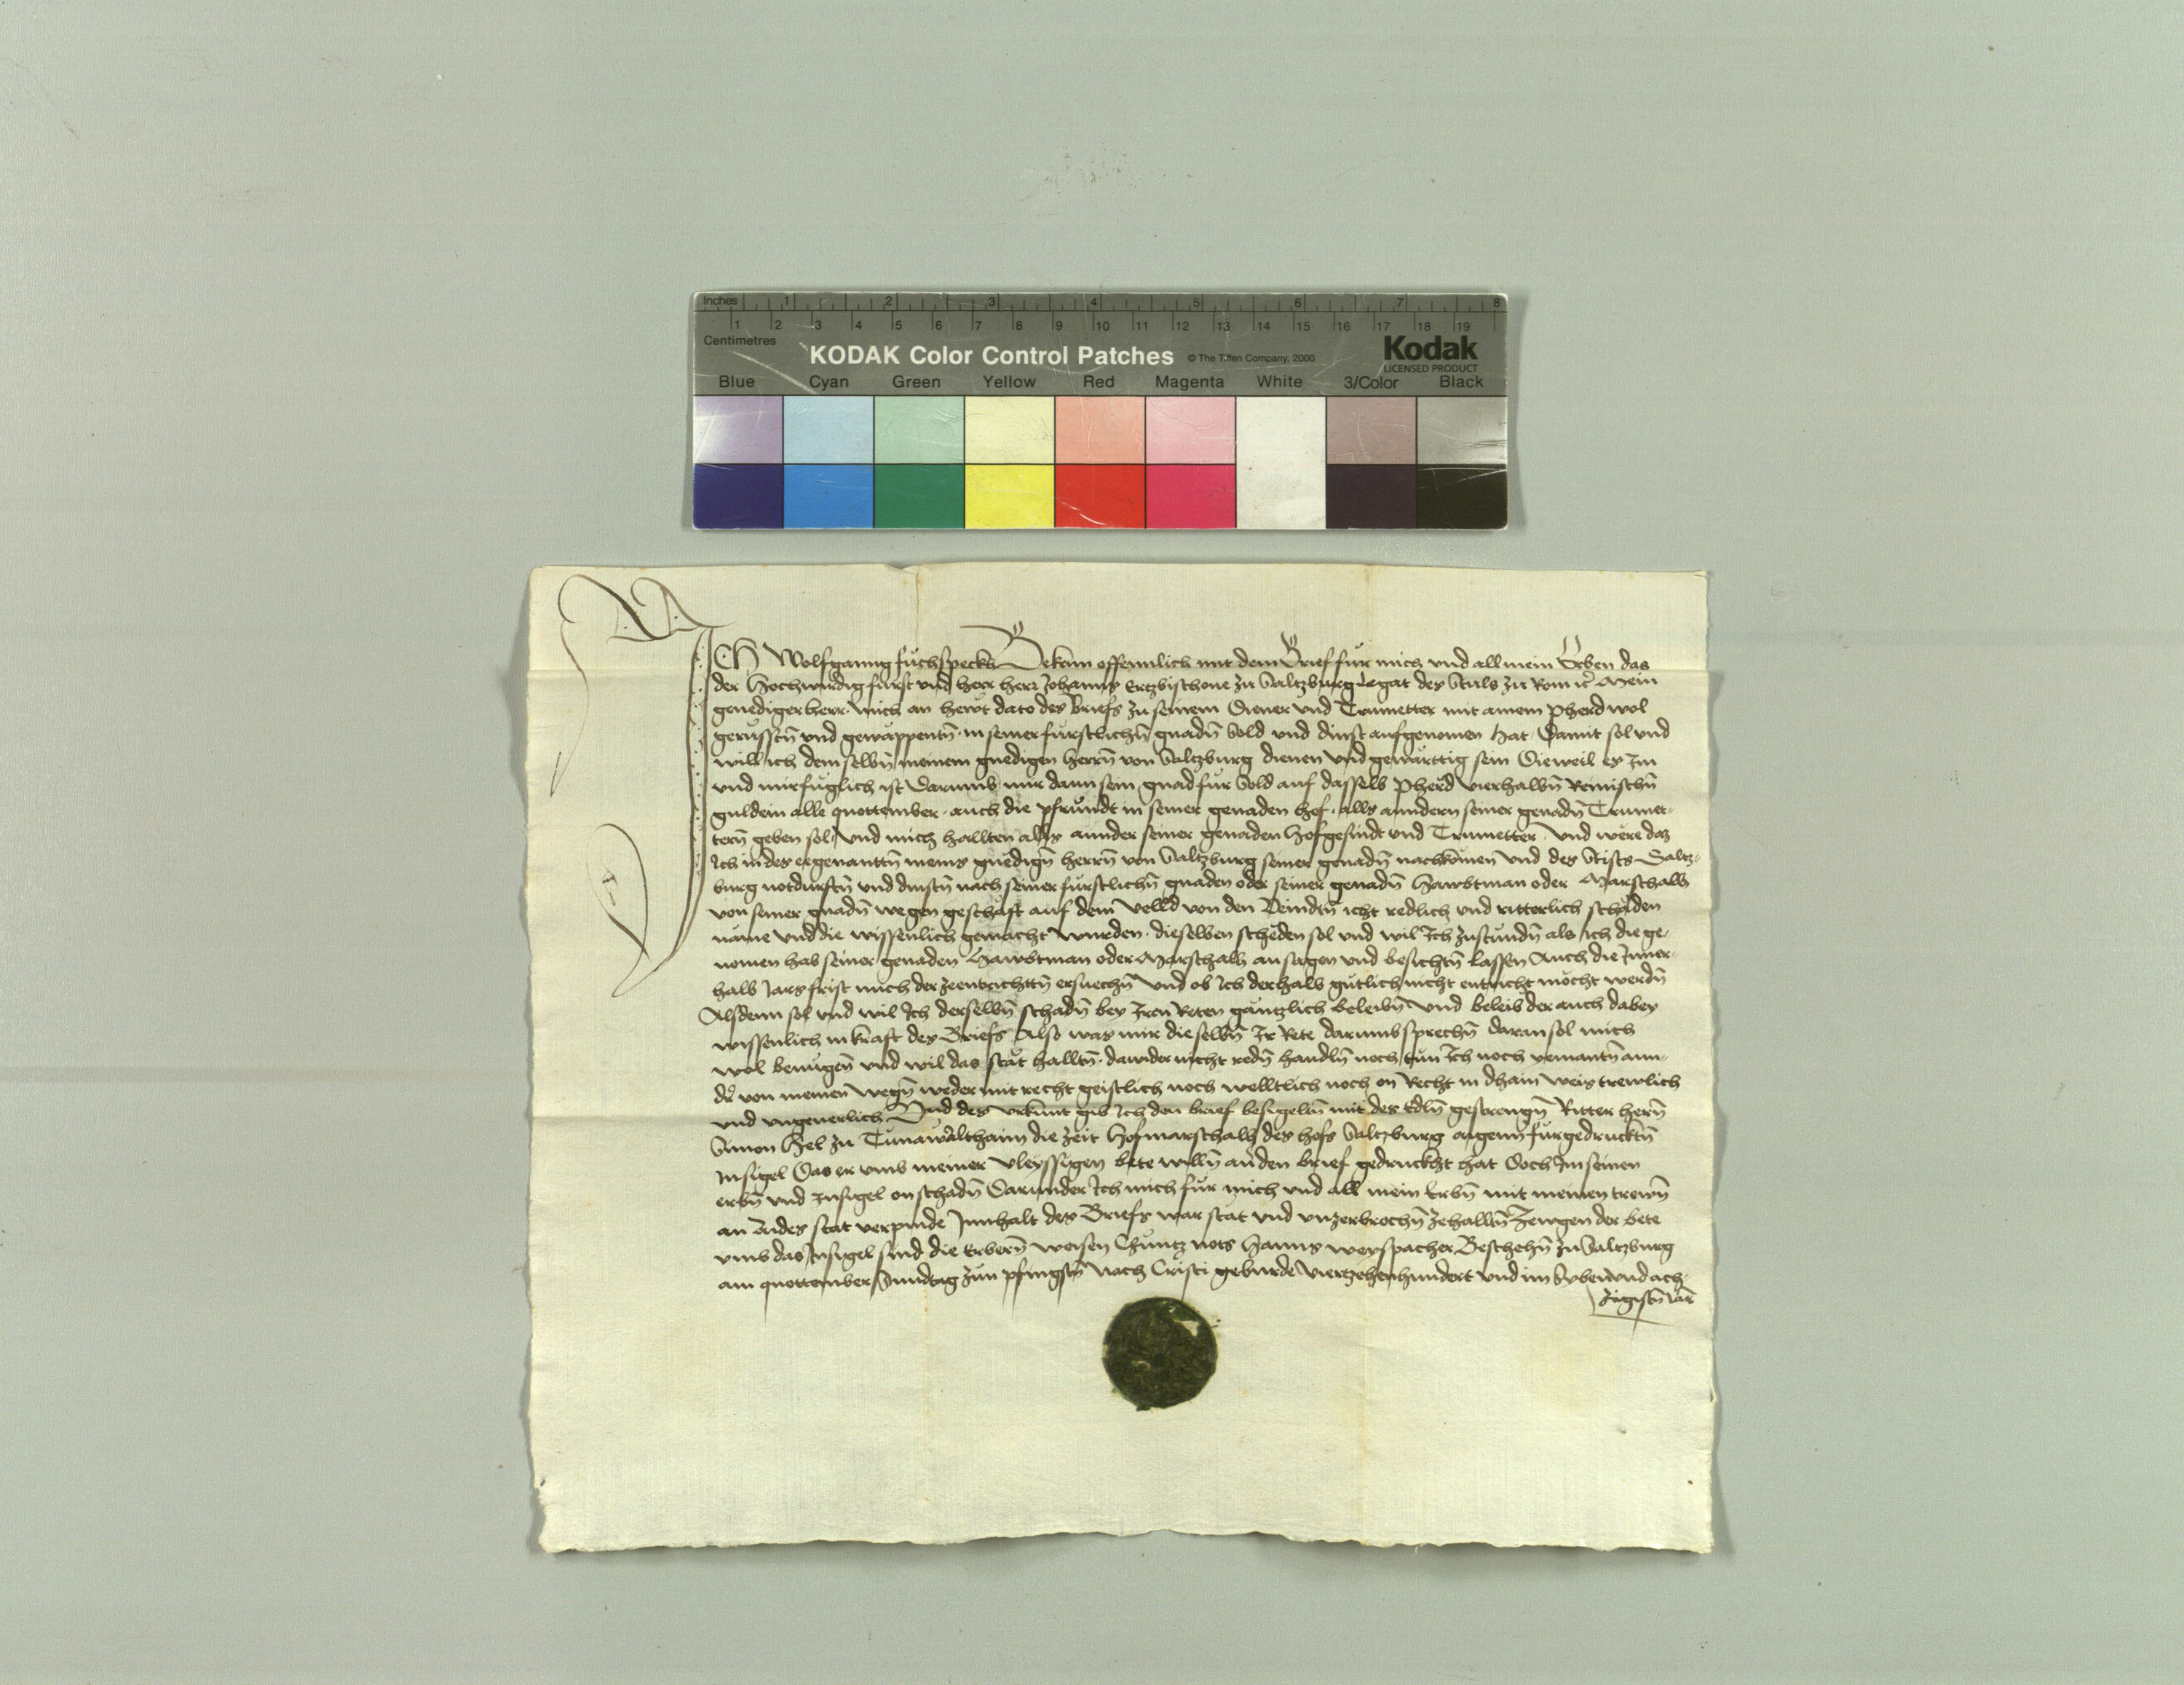 Inches 1 2 3 4 5 6 7 8
1 2 3 4 5 6 7 8 9 10 11 12 13 14 15 16 17 18 19
Centimetres
KODAK Color Control Patches © The Tiffen Company, 2000 Kodak
LICENSED PRODUCT
Blue Cyan Green Yellow Red Magenta White 3/Color Black
ICH Wolfganng fuchspeckh Bekenn offennlich mit dem Brief fur mich vnd all mein Erben das
der Hochwirdig furst vnd herr herr Johanns Ertzbischoue zu Saltzburg Legat des Stuls zu Rom rc Mein
genediger herr mich an hewt dato des briefs zu seinem Diener vnd Trumetter mit ainem pherd wol
gerússtn̄ vnd gewappentn̄ in seiner furstlichn̄ gnadn̄ Sold vnd dinst aufgenomen hat Damit sol vnd
will ich dem selbn̄ meinem gnedigen herrn̄ von Saltzburg dienen vnd gewarttig sein Dieweil es Im
vnd mir fuglich ist Darumb mir dann sein gnad fur Sold auf dasselb Pherd vierhalbn̄ Reinischn̄
guldein alle quottember auch die pfrundt in seiner genaden hof alls anndern seiner genadn̄ Trumet-
tern̄ geben sol vnd mich hallten alls annder seiner genaden Hofgesindt vnd Trumetter Vnd wêre daz
Ich in des egenanttn̄ meins gnedign̄ herrn̄ von Saltzburg seiner genadn̄ nachkomen vnd des Stifts Saltz-
burg notdurftn̄ vnd dinstn̄ nach seiner furstlichn̄ gnaden oder seiner genadn̄ Hawbtman oder Marschalh
von seiner gnadn̄ wegen geschäft auf dem velld von den Veindtn̄ icht redlich vnd ritterlich schäden
näme vnd die wissenlich gemacht wurden dieselben scheden sol vnd wil Ich zustundn̄ als ich die ge-
nomen hab seiner genaden Hawbtman oder Marschalh ansagen vnd besichtn̄ lassen Auch die Inner-
halb Jars frist mich der zeentrichttn̄ ersuechn̄ Vnd ob Ich derhalb gutlich nicht entricht mocht werdn̄
Alsdenn sol vnd wil Ich derselbn̄ schadn̄ bey Iren Reten gäntzlich beleibn̄ vnd beleib der auch dabey
wissenlich in kraft des Briefs Also was mir dieselbn̄ Ir Rete darumb sprechn̄ daran sol mich
wol benugen̄ vnd wil das stät halltn̄ dawider nicht redn̄ handln̄ noch tun Ich noch yemantn̄ ann-
der von meinen wegn̄ weder mit recht geistlich noch welltlich noch on Recht in dhain weis trewlich
vnd vngeuerlich Vnd des vrkunt gib Ich den brief besigeltn̄ mit des Edln̄ gestrengn̄ Ritter herrn̄
Simon die zeit Hofmarschalh des hofs Saltzburg aigenn̄ furgedrucktn̄
Insigel Das er vmb meiner vleyssigen bete willn̄ an den brief gedruckht hat Doch Im seinen
erbn̄ vnd Insigel on schadn̄ Darunder Ich mich fur mich vnd all mein Erbn̄ mit meinen trewn̄
an Aides stat verpinde Innhalt des Briefs war stät vnd vnzerbrochn̄ zehalltn̄ Zewgen der bete
vmb das Insigel sind die Erbern̄ weisen Chuntz nots Hanns weyspacher Beschehn̄ zu Saltzburg
am quottember Sunntag zun pfingstn̄ Nach Cristi geburde Viertzehenhundert vnd im Sybenvndach-
tzigistn̄ Jar